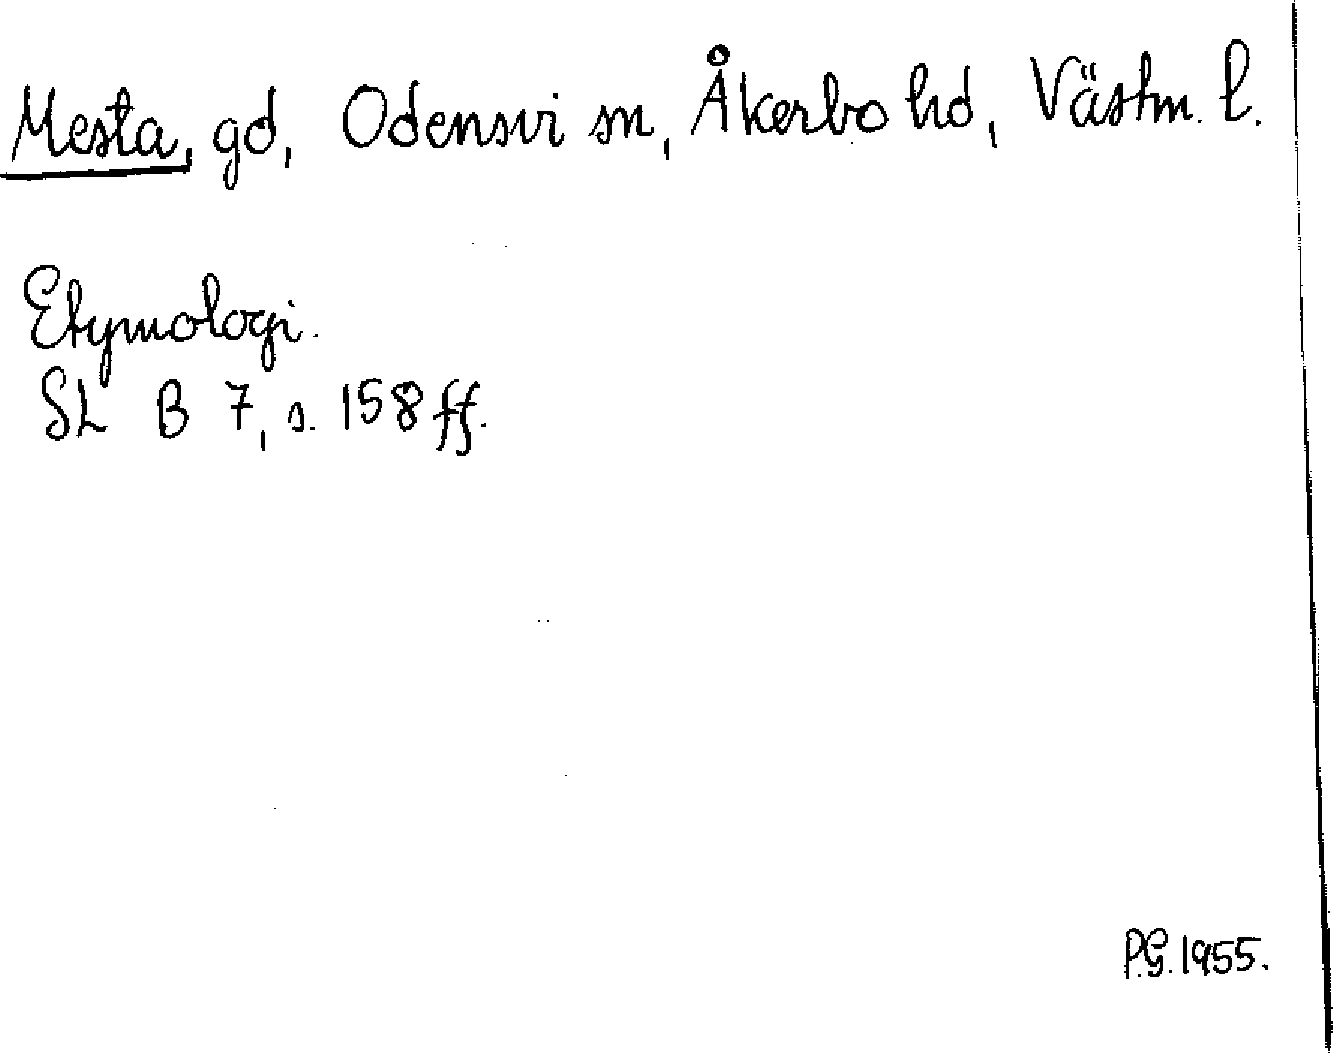 Mesta, gd, Odensvi sn, Åkerbo hd, Västm. l.
Etymologi.
SL B 7, s. 158 ff.
P.G. 1955.